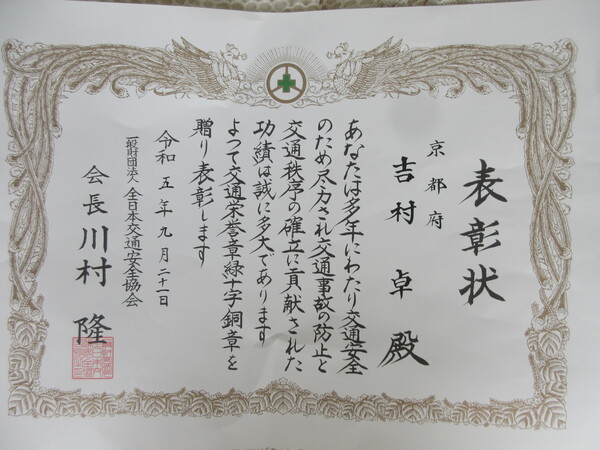 表彰状
京都府
吉村卓殿
あなたは多年にわたり交通安全
のため尽力され交通事故の防止と
交通秩序の確立に貢献された
功績は誠に多大であります
よって交通栄誉章緑十字銅章を
贈り表彰します
令和五年九月二十一日
一般財団法人全日本交通安全協会
会長川村隆